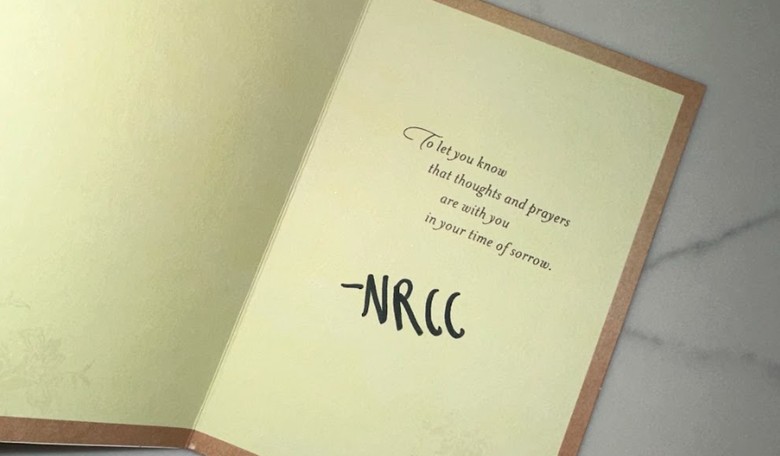 To let you know
that thoughts and prayers
are with you
in your time of sorrow.
-NRCC